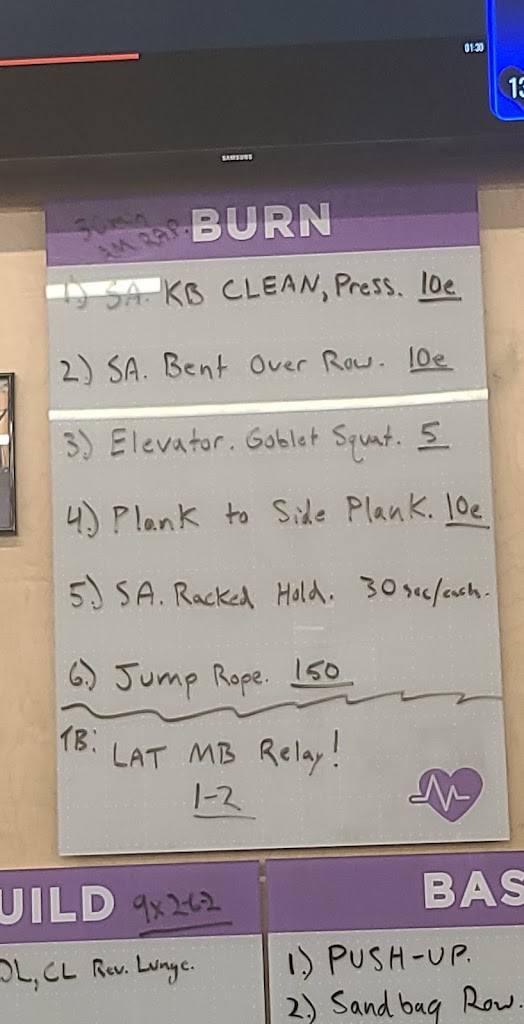 01:30
13
SAMSUNG
30 min
BURN
1) SA. KB CLEAN, Press. 10e
2.) SA. Bent Over Row. 10e
3.) Elevator. Goblet Squat. 5
4.) Plank to Side Plank. 10e
5.) SA. Racked Hold. 30 sec/each.
6.) Jump Rope. 150
TB: LAT MB Relay!
1-2
UILD 9x2-6-2
DL, CL Rev. Lunge.
BAS
1.) PUSH-UP.
2.) Sandbag Row.